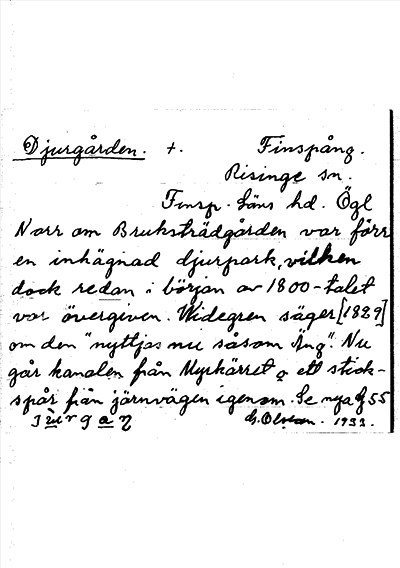 Djurgården. +. Finspång.
Risinge sn.
Finsp. läns hd. Ögl
Norr om Bruksträdgården var förr
en inhägnad djurpark, vilken
dock redan i början av 1800-talet
var övergiven. Widegren säger [1829]
om den "nyttjas nu såsom Äng". Nu
går kanalen från Myrkärret o ett stick-
spår från järnvägen igenom. Se nya 55
G. Olsson. 1933.